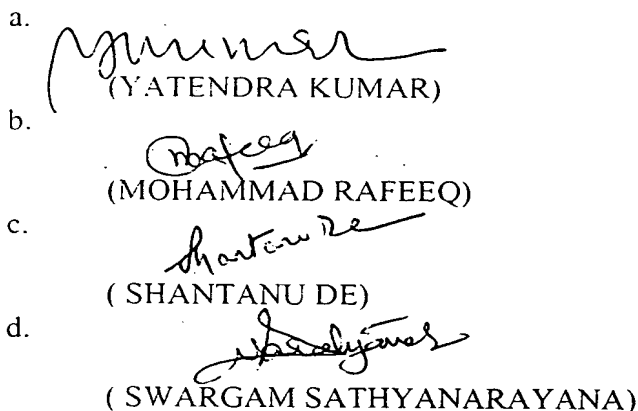 a.
(YATENDRA KUMAR)
b.
Rafeeq
(MOHAMMAD RAFEEQ)
c.
Shantanu De
( SHANTANU DE)
d.
( SWARGAM SATHYANARAYANA)